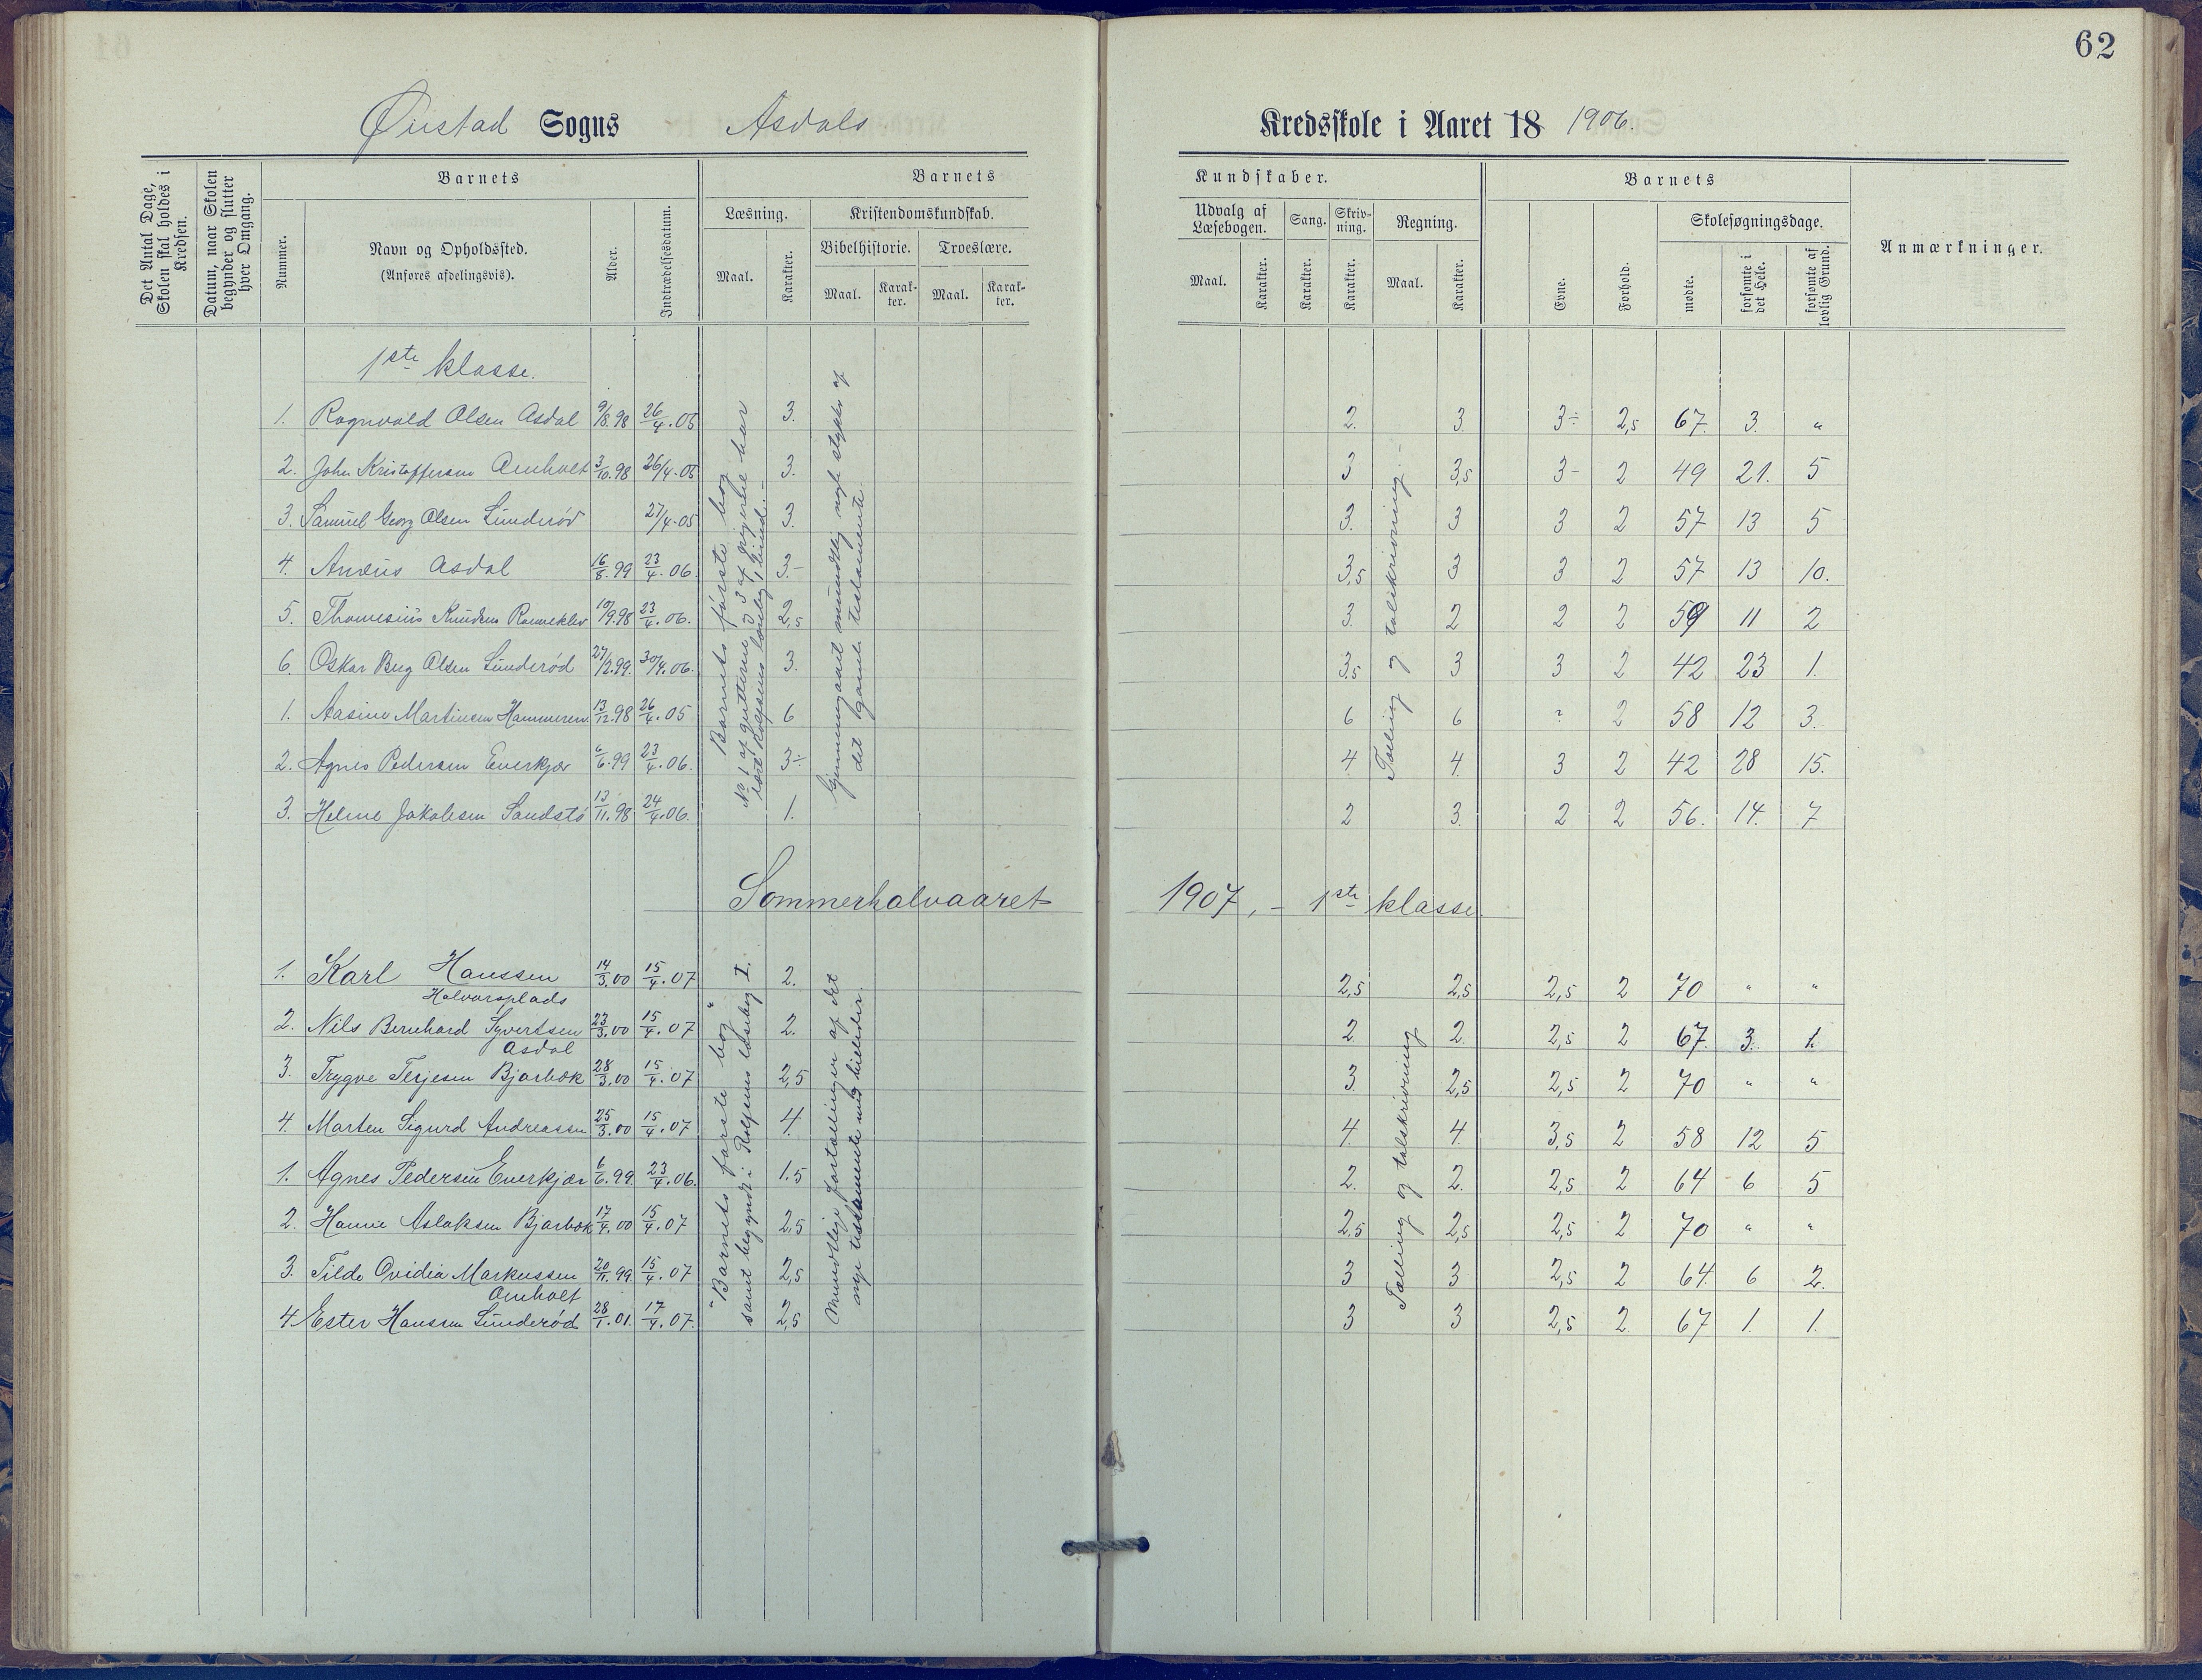 62
Øiestad Sogns Asdals Kredsskole i Aaret 18 1906.
Det Antal Dage, Skolen skal holdes i Kredsen.
Datum, naar Skolen begynder og slutter hver Omgang.
Barnets
Nummer.
Navn og Opholdssted.
(Anføres afdelingsvis).
Alder.
Indtrædelsesdatum.
Barnets Kundskaber.
Læsning.
Maal. Karakter.
Kristendomskundskab.
Bibelhistorie. Troeslære.
Maal. Karakter. Maal. Karakter.
Udvalg af Læsebogen.
Maal. Karakter.
Sang.
Karakter.
Skrivning.
Karakter.
Regning.
Maal. Karakter.
Barnets
Evne. Forhold.
Skolesøgningsdage.
mødte. forsømte i det Hele. forsømte af lovlig Grund.
Anmærkninger.
1ste klasse.
1. Ragnvald Olsen Asdal 9/8.98 26/4.05 3. 2. 3. 3÷ 2,5 67. 3. "
2. John Kristoffersen Omholt 3/10.98 26/4.05 3. 3 3,5 3- 2 49 21. 5
3. Samuel Georg Olsen Lunderød 27/4.05 3. 3. 3 3 2 57 13 5
4. Anders Asdal 16/8.99 23/4.06. 3.- 3,5 3 3 2 57 13 10.
5. Thomesius Knudsen 19/9.98 23/4.06. 2,5 3. 2 2 2 59 11 2
6. Oskar Berg Olsen Lunderød 27/2.99. 30/4.06. 3. 3.5 3 3 2 42 23 1.
1. Aasine Martinsen Hammeren 13/12.98 26/4.05 6 6 6 ? 2 58 12 3.
2. Agnes Pedersen Everkjær 6/6.99 23/4.06. 3÷ 4 4. 3 2 42 28 15.
3. Helene Jakobsen Sandstø 13/11.98 24/4.06. 1. 2 3. 2 2 56. 14. 7
Barnets første bog
No 1 af gutterne og 3 af pigerne har læst Rolfsens læsebog, 1 bind.-
Gjennemgaaet mundtlig nogle stykker af det gamle testamente.
Tælling og talskrivning.-
Sommerhalvaaret 1907.- 1ste klasse
1. Karl Hanssen 14/3.00 15/4.07 2. 2,5 2,5 2,5 2 70 " "
Halvorsplads
2. Nils Bernhard Syvertsen 23/3.00 15/4.07 2. 2. 2. 2,5 2 67. 3. 1.
Asdal
3. Trygve Terjesen Bjorbæk 28/3.00 15/4.07 2,5 3. 2,5 2,5 2 70 " "
4. Marten Sigurd Andreassen 25/3.00 15/4.07 4. 4. 4. 3,5 2 58 12 5
1. Agnes Pedersen Everkjær 6/6.99. 23/4.06. 1.5 2. 2. 2,5 2 64 6 5
2. Hanne Aslaksen Bjorbæk 17/4.00 15/4.07 2,5 2.5 2,5 2,5 2 70 " "
3. Tilde Ovidia Markussen 20/11.99. 15/4.07 2,5 3 3 2,5 2 64. 6 2.
Omholt
4. Ester Hanssen Lunderød 28/1.01. 17/4.07. 2,5 3 3 2,5 2. 67 1. 1.
"Barnets første bog"
samt begyndt i Rolfsens læsebog I.
Mundtlige fortællinger af det nye testamente med billeder.
Tælling og talskrivning